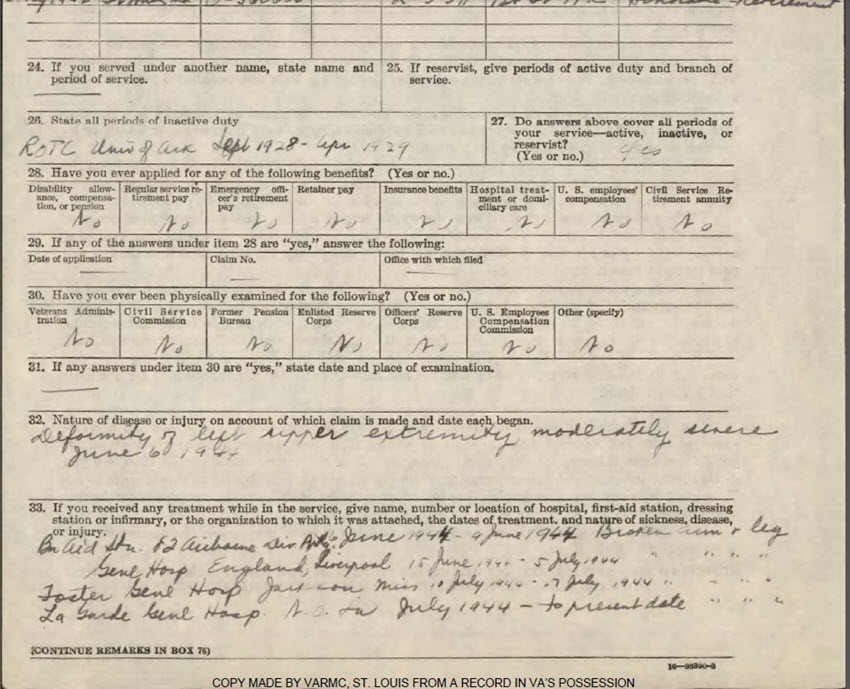 Retirement
24. If you served under another name, state name and period of service.
25. If reservist, give periods of active duty and branch of service.
26. State all periods of inactive duty
ROTC Univ of Ark Sept 1928 - Apr 1929
27. Do answers above cover all periods of your service—active, inactive, or reservist? (Yes or no.) yes
28. Have you ever applied for any of the following benefits? (Yes or no.)
Disability allowance, compensation, or pension No
Regular service retirement pay No
Emergency officer's retirement pay No
Retainer pay No
Insurance benefits No
Hospital treatment or domiciliary care No
U. S. employees' compensation No
Civil Service Retirement annuity No
29. If any of the answers under item 28 are "yes," answer the following:
Date of application
Claim No.
Office with which filed
30. Have you ever been physically examined for the following? (Yes or no.)
Veterans Administration No
Civil Service Commission No
Former Pension Bureau No
Enlisted Reserve Corps No
Officers' Reserve Corps No
U. S. Employees Compensation Commission No
Other (specify) No
31. If any answers under item 30 are "yes," state date and place of examination.
32. Nature of disease or injury on account of which claim is made and date each began.
Deformity of left upper extremity, moderately severe
June 6 1944
33. If you received any treatment while in the service, give name, number or location of hospital, first-aid station, dressing
station or infirmary, or the organization to which it was attached, the dates of treatment, and nature of sickness, disease,
or injury.
Bn Aid Stn. 82 Airborne Div. June 1944 - 9 June 1944 Broken arm & leg
Genl Hosp England, Liverpool 15 June 1944 - 5 July 1944 " " " "
Foster Genl Hosp Jackson Miss 10 July 1944 - July 1944 " " " "
La Garde Genl Hosp. N.O. La July 1944 - to present date " " "
(CONTINUE REMARKS IN BOX 76)
16—26390-3
COPY MADE BY VARMC, ST. LOUIS FROM A RECORD IN VA'S POSSESSION